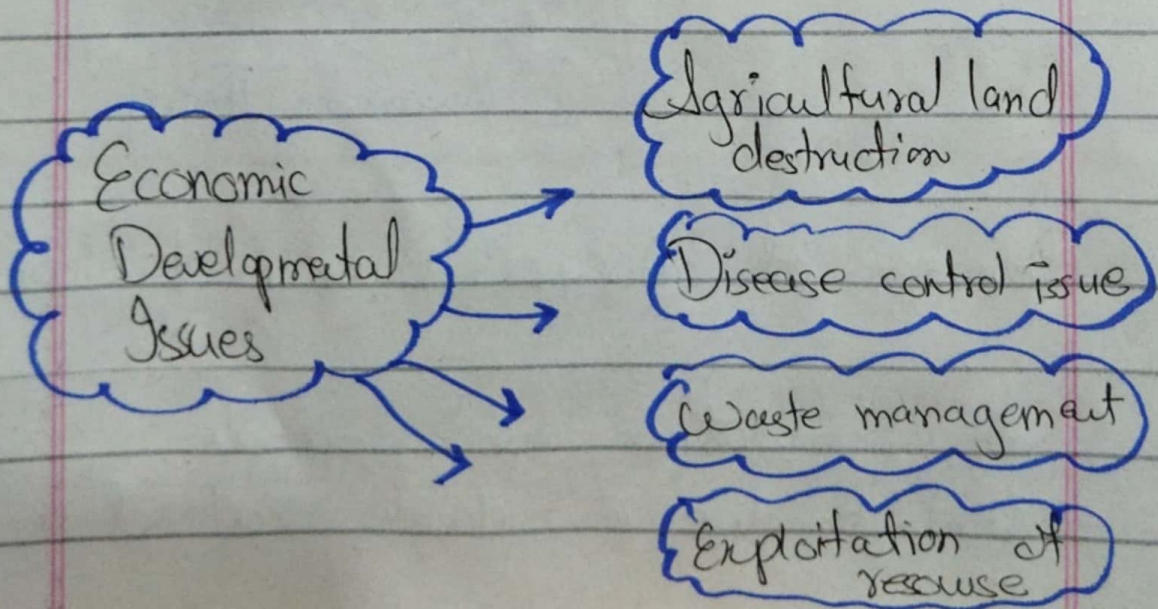 Economic
Developmental
Issues
Agricultural land
destruction
Disease control issue
Waste management
Exploitation of
resouse